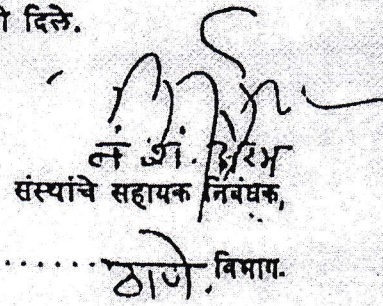 ी दिले.
लं. शं.
संस्थांचे सहायक निबंधक,
......ठाणे. विभाग.